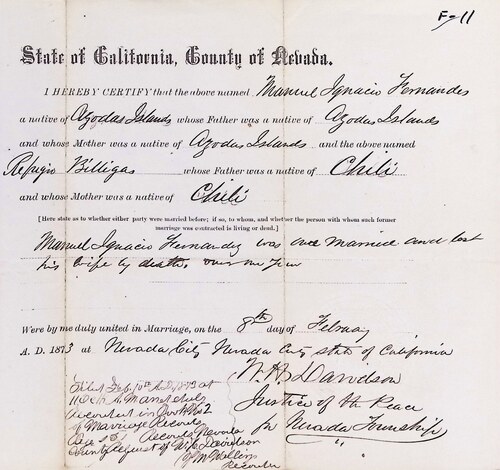 F-11
State of California, County of Nevada.
I HEREBY CERTIFY that the above named Manuel Ignacio Fernandes
a native of Azodas Islands whose Father was a native of Azodas Islands
and whose Mother was a native of Azodas Islands and the above named
Refugio Billigas whose Father was a native of Chili
and whose Mother was a native of Chili
[Here state as to whether either party were married before; if so, to whom, and whether the person with whom such former
marriage was contracted is living or dead.]
Manuel Ignacio Fernandez was once married and lost
his wife by death, over one year
Were by me duly united in Marriage, on the 8th day of Febuary
A. D. 1873 at Nevada City Nevada City state of California
W. H. Davidson
Justice of the Peace
Nevada Township
Filed Feb. 10th A.D. 1873 at
recorded in Book No 2
of Marriage Records
Records Nevada
County request of Davidson
Recorder